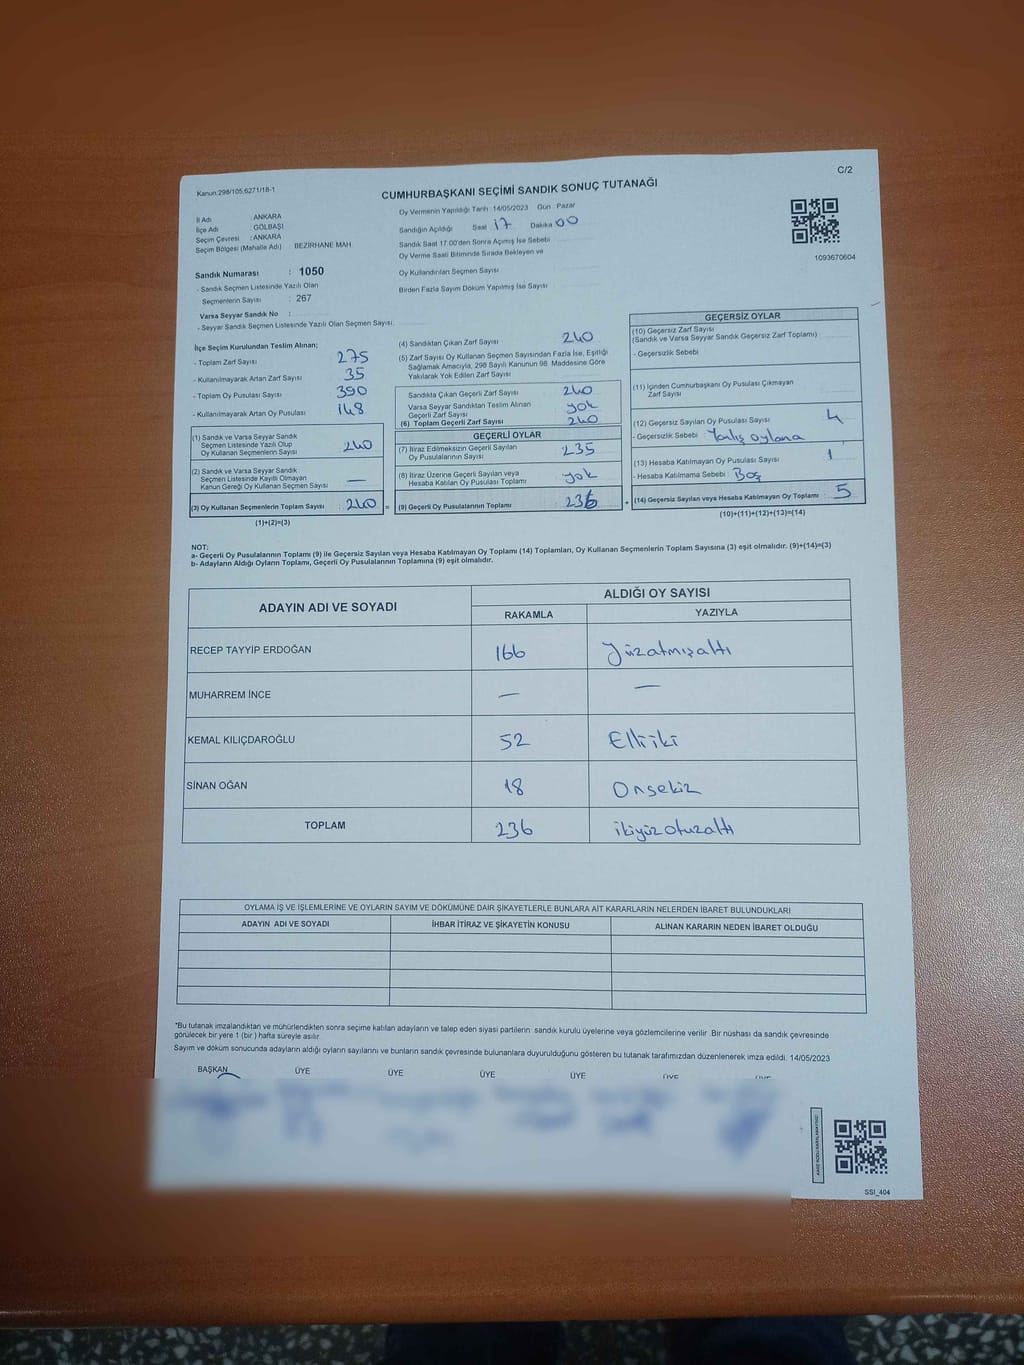 Kanun:298/105,6271/18-1
C/2
CUMHURBAŞKANI SEÇİMİ SANDIK SONUÇ TUTANAĞI
İl Adı : ANKARA
İlçe Adı : GÖLBAŞI
Seçim Çevresi : ANKARA
Seçim Bölgesi (Mahalle Adı) : BEZİRHANE MAH.
Sandık Numarası : 1050
- Sandık Seçmen Listesinde Yazılı Olan
Seçmenlerin Sayısı : 267
Varsa Seyyar Sandık No :
- Seyyar Sandık Seçmen Listesinde Yazılı Olan Seçmen Sayısı
Oy Vermenin Yapıldığı Tarih :14/05/2023 Gün : Pazar
Sandığın Açıldığı Saat 17 Dakika 00
Sandık Saat 17:00'den Sonra Açılmış İse Sebebi
Oy Verme Saati Bitiminde Sırada Bekleyen ve
Oy Kullandırılan Seçmen Sayısı
Birden Fazla Sayım Döküm Yapılmış İse Sayısı
1093670604
İlçe Seçim Kurulundan Teslim Alınan;
- Toplam Zarf Sayısı 275
- Kullanılmayarak Artan Zarf Sayısı 35
- Toplam Oy Pusulası Sayısı 390
- Kullanılmayarak Artan Oy Pusulası 148
(1) Sandık ve Varsa Seyyar Sandık
Seçmen Listesinde Yazılı Olup
Oy Kullanan Seçmenlerin Sayısı 240
(2) Sandık ve Varsa Seyyar Sandık
Seçmen Listesinde Kayıtlı Olmayan
Kanun Gereği Oy Kullanan Seçmen Sayısı —
(3) Oy Kullanan Seçmenlerin Toplam Sayısı : 240 =
(1)+(2)=(3)
(4) Sandıktan Çıkan Zarf Sayısı 240
(5) Zarf Sayısı Oy Kullanan Seçmen Sayısından Fazla İse, Eşitliği
Sağlamak Amacıyla, 298 Sayılı Kanunun 98. Maddesine Göre
Yakılarak Yok Edilen Zarf Sayısı
Sandıkta Çıkan Geçerli Zarf Sayısı 240
Varsa Seyyar Sandıktan Teslim Alınan
Geçerli Zarf Sayısı yok
(6) Toplam Geçerli Zarf Sayısı 240
GEÇERLİ OYLAR
(7) İtiraz Edilmeksizin Geçerli Sayılan
Oy Pusulalarının Sayısı 235
(8) İtiraz Üzerine Geçerli Sayılan veya
Hesaba Katılan Oy Pusulası Toplamı yok
(9) Geçerli Oy Pusulalarının Toplamı 236 +
GEÇERSİZ OYLAR
(10) Geçersiz Zarf Sayısı
(Sandık ve Varsa Seyyar Sandık Geçersiz Zarf Toplamı)
- Geçersizlik Sebebi
(11) İçinden Cumhurbaşkanı Oy Pusulası Çıkmayan
Zarf Sayısı
(12) Geçersiz Sayılan Oy Pusulası Sayısı 4
- Geçersizlik Sebebi : Yanlış oylama
(13) Hesaba Katılmayan Oy Pusulası Sayısı 1
- Hesaba Katılmama Sebebi : Boş
(14) Geçersiz Sayılan veya Hesaba Katılmayan Oy Toplamı 5
(10)+(11)+(12)+(13)=(14)
NOT:
a- Geçerli Oy Pusulalarının Toplamı (9) ile Geçersiz Sayılan veya Hesaba Katılmayan Oy Toplamı (14) Toplamları, Oy Kullanan Seçmenlerin Toplam Sayısına (3) eşit olmalıdır. (9)+(14)=(3)
b- Adayların Aldığı Oyların Toplamı, Geçerli Oy Pusulalarının Toplamına (9) eşit olmalıdır.
ADAYIN ADI VE SOYADI
ALDIĞI OY SAYISI
RAKAMLA YAZIYLA
RECEP TAYYİP ERDOĞAN 166 Yüzatmışaltı
MUHARREM İNCE — —
KEMAL KILIÇDAROĞLU 52 Elliiki
SİNAN OĞAN 18 Onsekiz
TOPLAM 236 ikiyüzotuzaltı
OYLAMA İŞ VE İŞLEMLERİNE VE OYLARIN SAYIM VE DÖKÜMÜNE DAİR ŞİKAYETLERLE BUNLARA AİT KARARLARIN NELERDEN İBARET BULUNDUKLARI
ADAYIN ADI VE SOYADI İHBAR İTİRAZ VE ŞİKAYETİN KONUSU ALINAN KARARIN NEDEN İBARET OLDUĞU
*Bu tutanak imzalandıktan ve mühürlendikten sonra seçime katılan adayların ve talep eden siyasi partilerin sandık kurulu üyelerine veya gözlemcilerine verilir. Bir nüshası da sandık çevresinde
görülecek bir yere 1 (bir) hafta süreyle asılır.
Sayım ve döküm sonucunda adayların aldığı oyların sayılarını ve bunların sandık çevresinde bulunanlara duyurulduğunu gösteren bu tutanak tarafımızdan düzenlenerek imza edildi. 14/05/2023
BAŞKAN ÜYE ÜYE ÜYE ÜYE ÜYE ÜYE
SSI_404